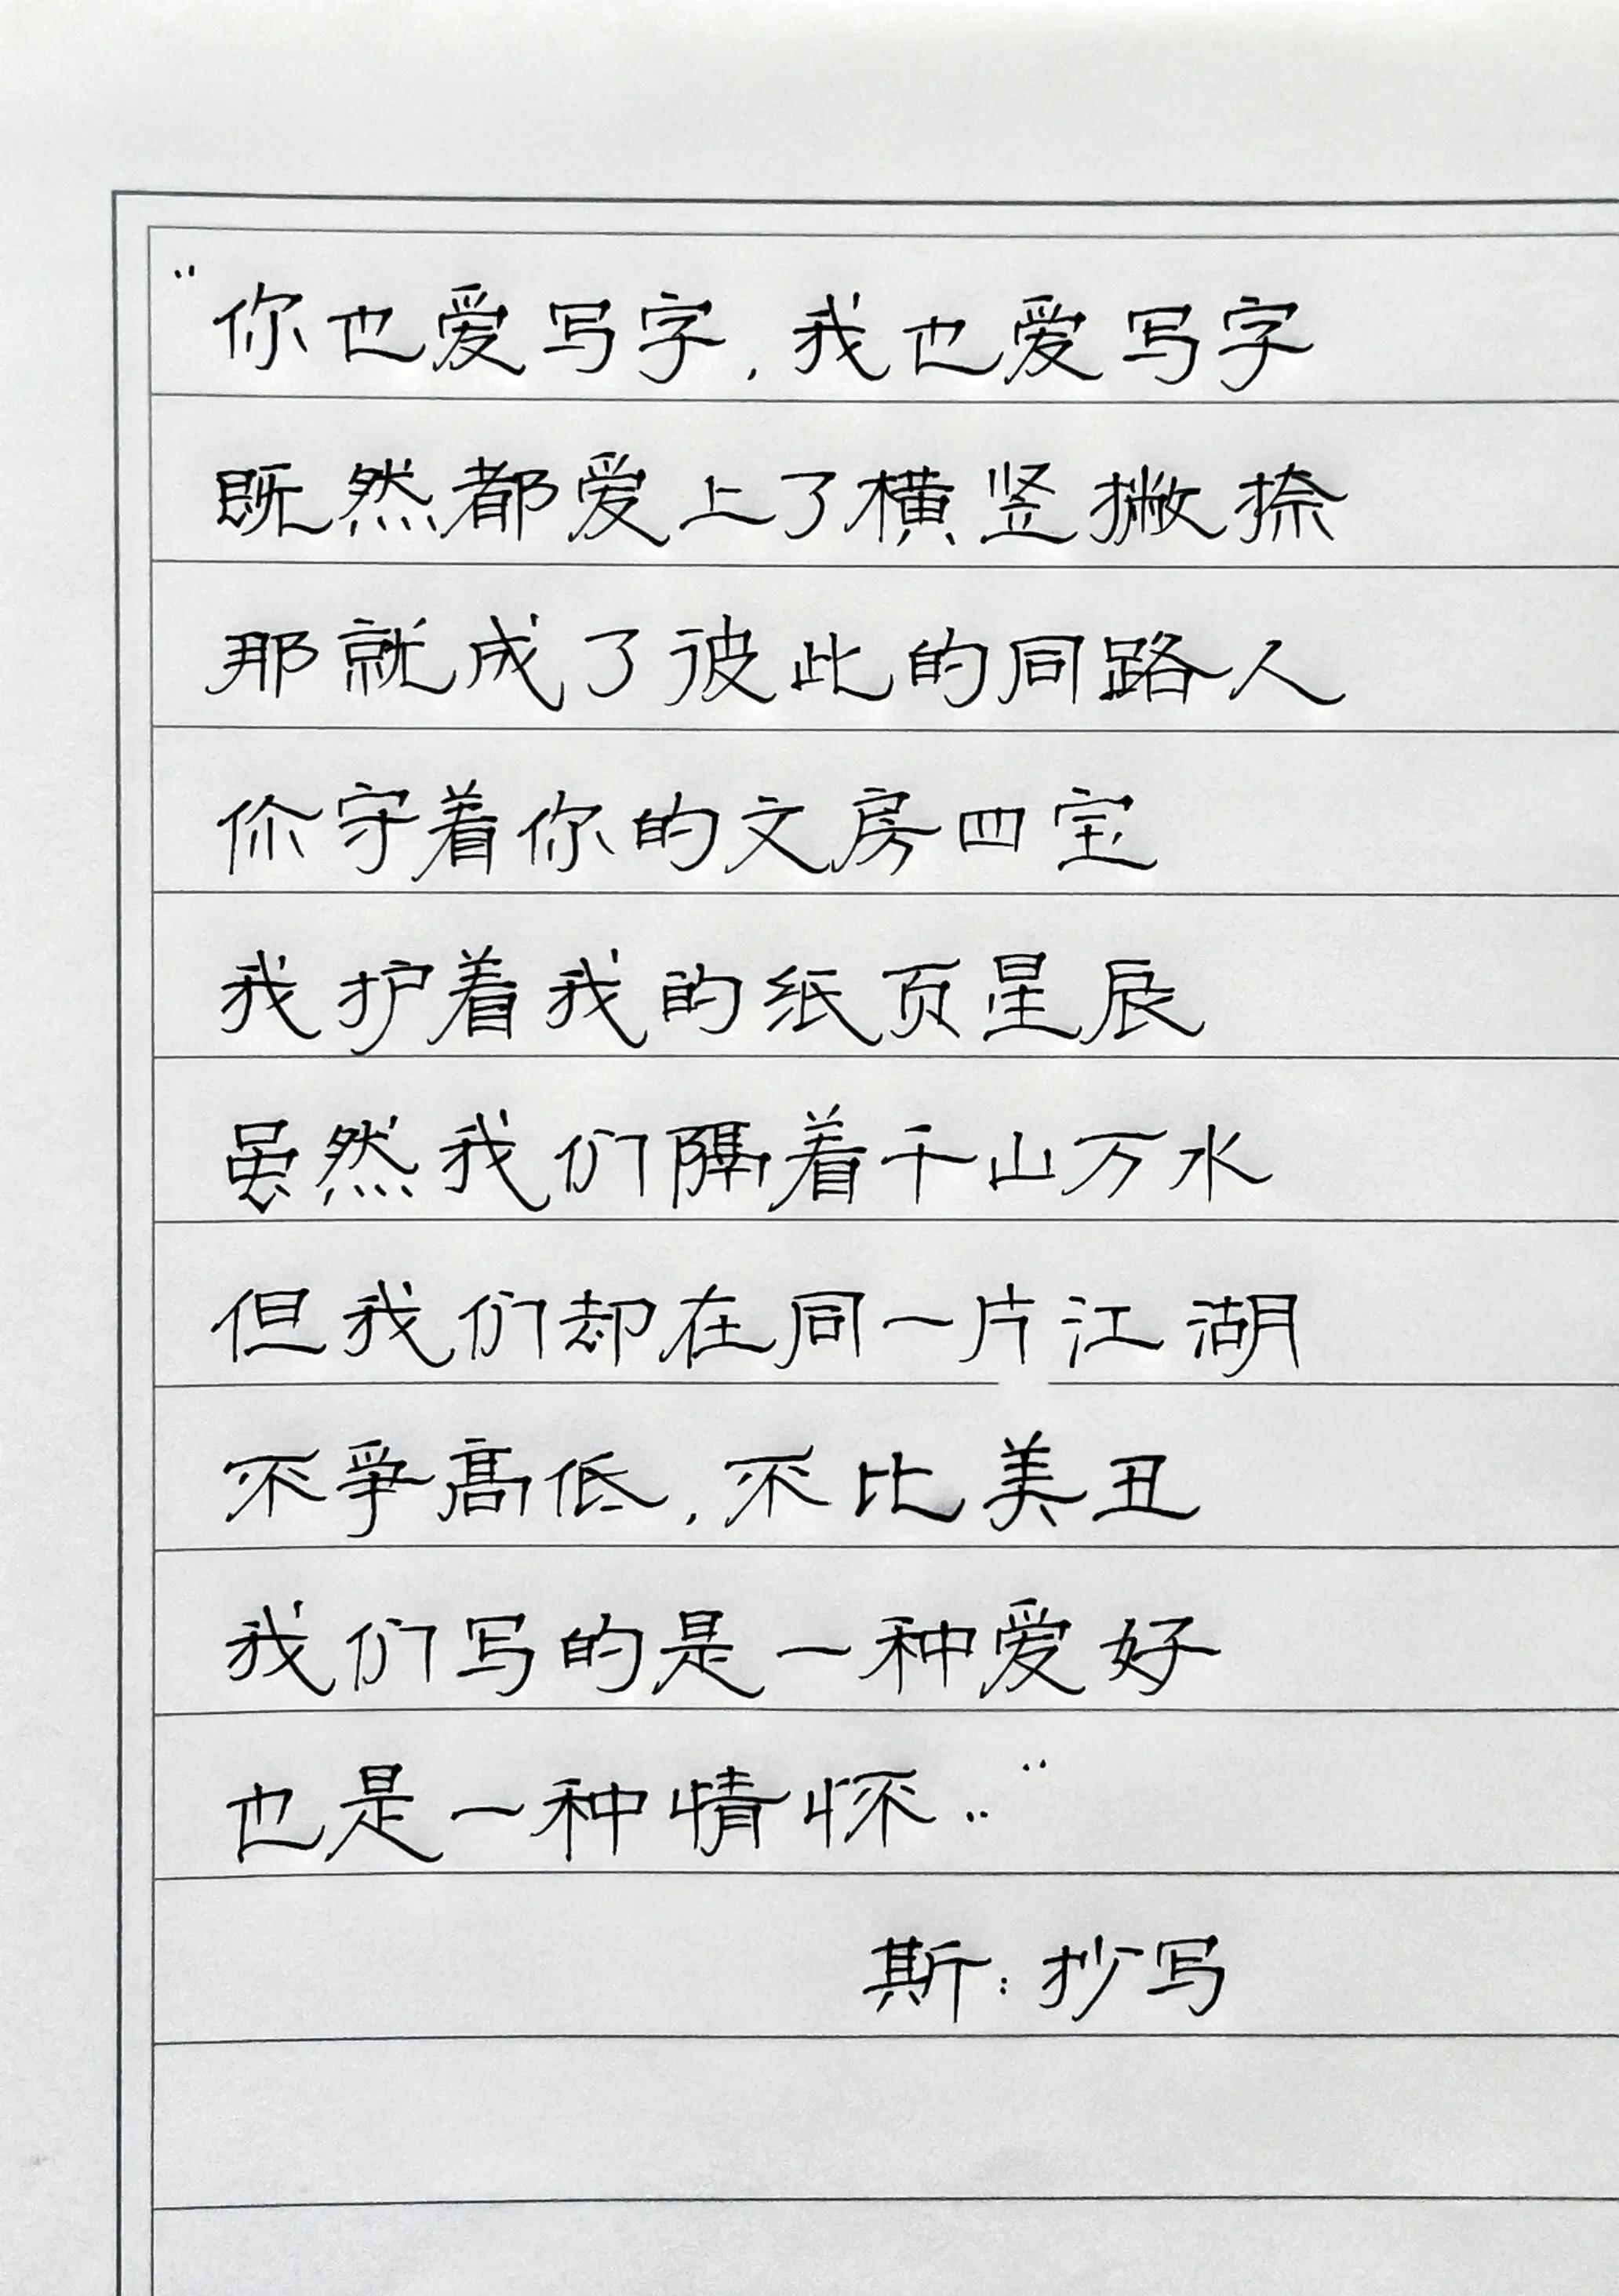 “你也爱写字,我也爱写字
既然都爱上了横竖撇捺
那就成了彼此的同路人
你守着你的文房四宝
我护着我的纸页星辰
虽然我们隔着千山万水
但我们却在同一片江湖
不争高低,不比美丑
我们写的是一种爱好
也是一种情怀..”
斯:抄写